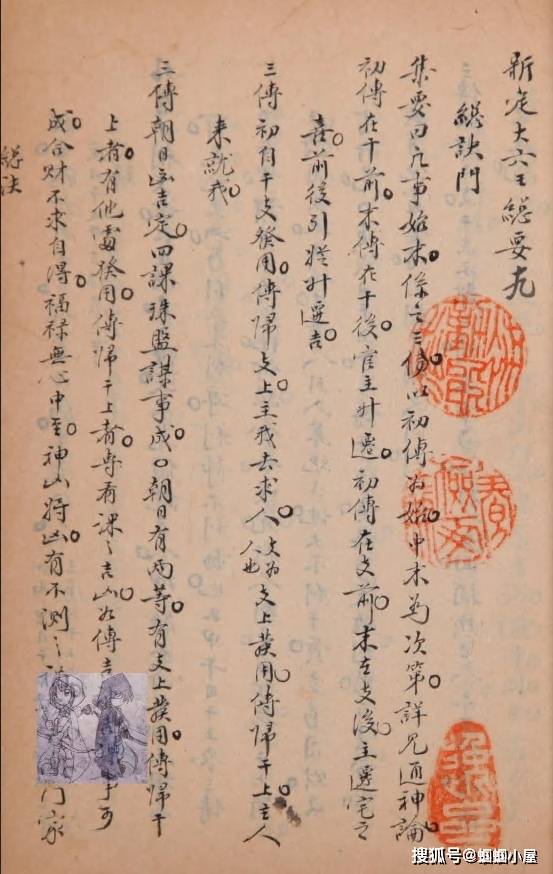 新定大六壬總要九
總訣門
集要曰凡事始末。係之三傳。以初傳為始。中末為次第。詳見通神論。
初傳在干前。末傳在干後。官主升遷。初傳在支前。末在支後。主遷宅之
喜。前後引從升遷吉。
三傳初自干支發用。傳歸支上。主我去求人。支為人也支上發用。傳歸干上。主人
來就我。
三傳朝日凶吉定。四課珠盤謀事成。朝日有兩等。有支上發用。傳歸干
上者。有他處發用。傳歸干上者。專看課之吉凶。為傳吉事可
成。合財不求自得。福祿無心中至。神凶將凶。有不測之門家
總法
搜狐号@蝈蝈小屋